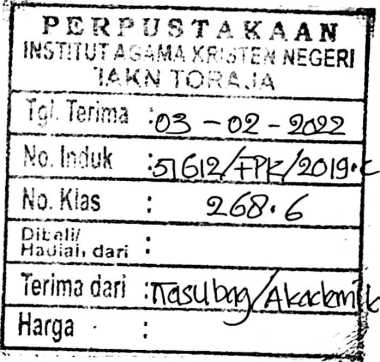 PERPUSTAKAAN
INSTITUT AGAMA KRISTEN NEGERI
IAKN TORAJA
Tgl. Terima : 03 - 02 - 2022
No. Induk : 51612/FPK/2019.c
No. Klas : 268.6
Dibeli/
Hadiah dari :
Terima dari : Kasubag/Akademik
Harga :